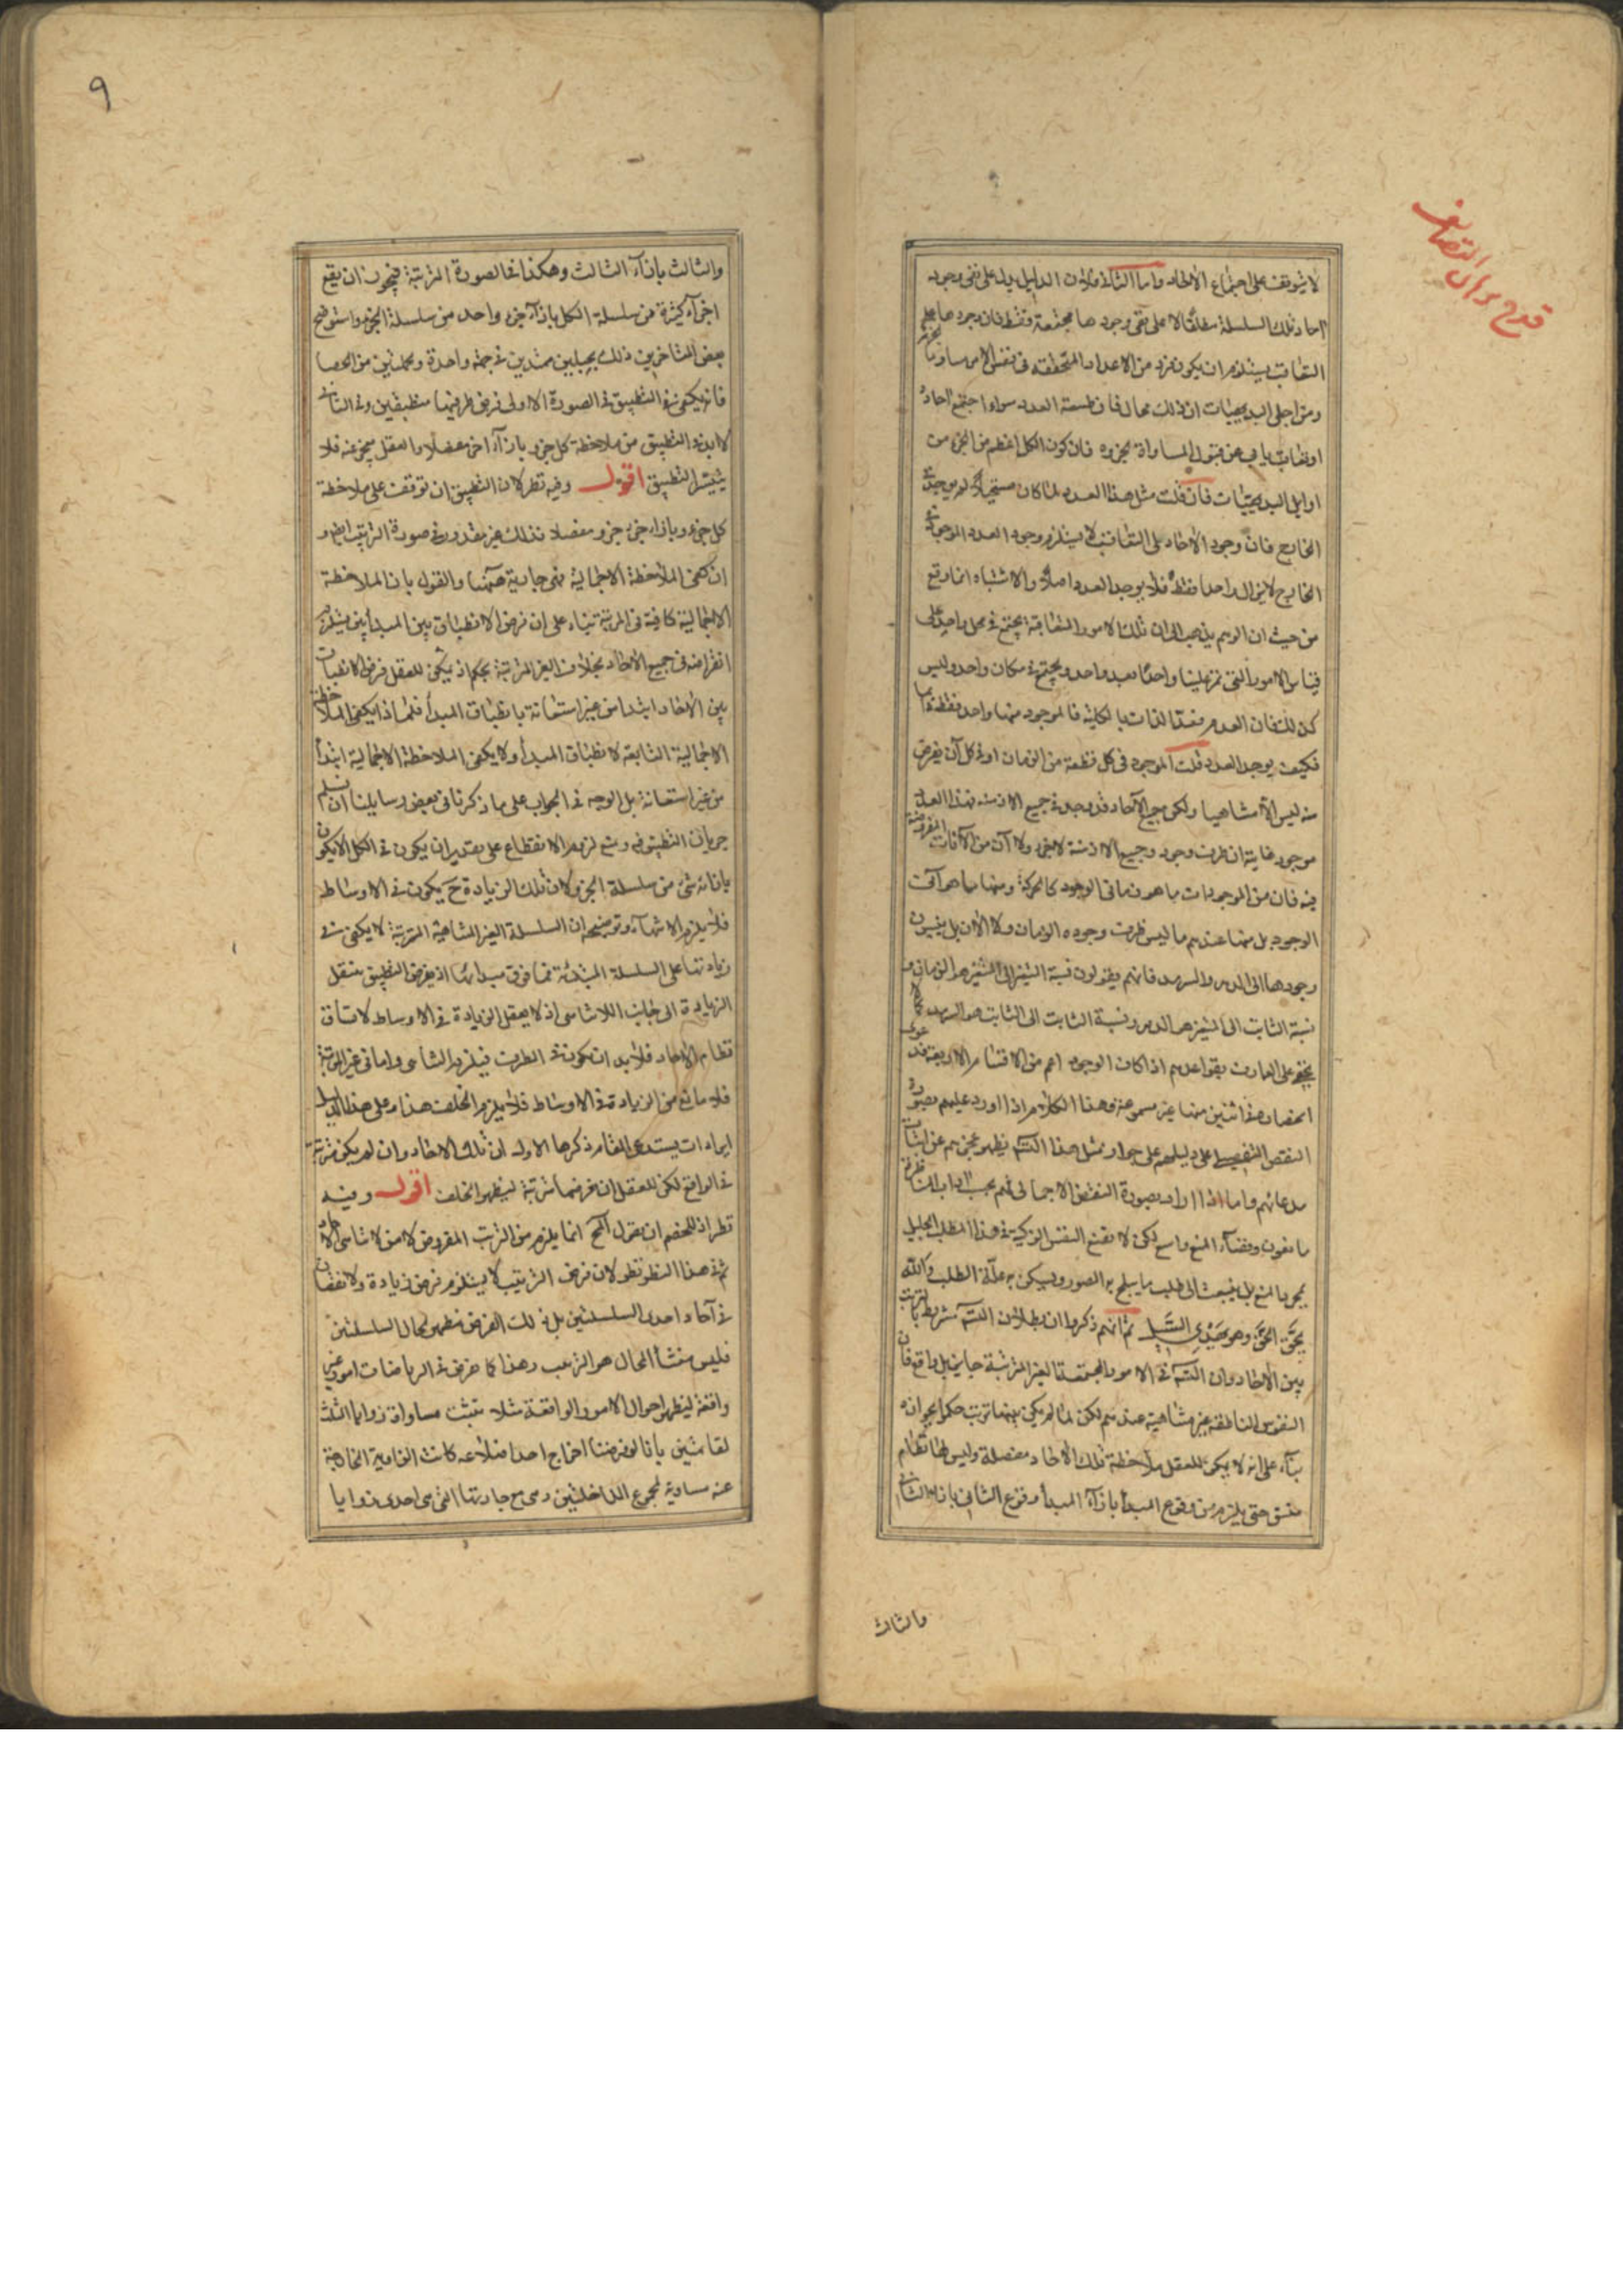 قدح برهان التضايف
لا يتوقف على اجتماع الآحاد واما الثانى فلان الدليل يدل على نفى وجود
آحاد تلك السلسلة مطلقا لا على نفى وجودها مجتمعة فقط فان وجودها على نحو
التعاقب يستلزم ان يكون فرد من الاعداد المتحققة فى نفس الامر مساويا
ومن اجلى البديهيات ان ذلك محال فان طبيعة العدد سواء اجتمع آحاده
او تعاقبت يابى عن قبول المساواة لجزءه فان كون الكل اعظم من الجزء من
اوايل البديهيات فان قلت مثل هذا العدد لما كان مستحيلا لم يوجد فى
الخارج فان وجود الآحاد على التعاقب لا يستلزم وجود العدد الموجود فى
الخارج لا يزال واحدا فقط فلا يوجد العدد اصلا والاشتباه انما وقع
من حيث ان الوهم يذهب الى ان تلك الامور المتعاقبة يجتمع فى محل واحد على
قياس الامور التى تمر علينا واحدا بعد واحد ويجتمع فى مكان واحد وليس
كذلك فان العدم فيها لذات بالكلية فالموجود منها واحد فقط دائما
فكيف يوجد العدد قلت الموجود فى كل قطعة من الزمان او فى كل آن يفرض
منه ليس الا متناهيا ولكن جميع الآحاد قد وجد فى جميع الازمنة فهذا العدد
موجود غاية ان ظرف وجوده جميع الازمنة لا جزء ولا آن من الآنات المفروضة
فيه فان من الموجودات ما هو زمانى الوجود كالحركة ومنها ما هو آنى
الوجود بل منها عندهم ما ليس ظرف وجوده الزمان ولا الآن بل ينسبون
وجودها الى الدهر والسرمد فانهم يقولون نسبة المتغير الى المتغير هو الزمان و
نسبة الثابت الى المتغير هو الدهر ونسبة الثابت الى الثابت هو السرمد كما لا
يخفى على العارف بقواعدهم اذا كان الوجود اعم من الاقسام الاربعة فدعوى
انحصاره فى اثنين منها غير مسموعة وهذا الكلام اذا اورد عليهم بصورة
النقض التفصيلى على دليلهم على جواز مثل هذا التسلسل يظهر عجزهم عن اثبات
مدعائهم واما اذا اورد بصورة النقض الاجمالى فهم بحسب آداب المناظرة
مانعون وفضاء المنع واسع لكن لا يقنع النفس الزكية فى هذا المطلب الجليل
بمجرد المنع بل ينبعث الى طلب ما يثلج به الصدور ويسكن به غلة الطلب والله
يحق الحق وهو يهدى السبيل ثم انهم ذكروا ان بطلان التسلسل مشروط بالترتب
بين الآحاد وان التسلسل فى الامور المجتمعة الغير المترتبة جايز بل واقع فان
النفوس الناطقة غير متناهية عندهم لكن لما لم يكن بينها ترتب حكموا بجوازه
بناء على انه لا يمكن للعقل ملاحظة تلك الآحاد مفصلة وليس لها نظام
متسق حتى يلزم من وقوع المبدأ بازاء المبدأ وقوع الثانى بازاء الثانى
والثالث
٩
والثالث بازاء الثالث وهكذا فى الصورة المترتبة فيجوز ان يقع
اجزاء كثيرة من سلسلة الكل بازاء جزء واحد من سلسلة الجزء واستوضح
بعض المتاخرين ذلك بجبلين ممتدين فى جهة واحدة وبجملتين من الحصا
فانه يكفى فى التطبيق فى الصورة الاولى فرض طرفيهما منطبقين وفى الثانى
لا بد فى التطبيق من ملاحظة كل جزء بازاء آخر مفصلا والعقل يعجز عنه فلا
يتيسر التطبيق اقول وفيه نظر لان التطبيق ان توقف على ملاحظة
كل جزء بازاء جزء جزء مفصلا فذلك غير مقدور فى صورة الترتيب ايضا و
ان كفى الملاحظة الاجمالية فهى جارية ههنا والقول بان الملاحظة
الاجمالية كافية فى المرتبة بناء على ان فرض الانطباق بين المبدأين يستلزم
انفراضه فى جميع الآحاد بخلاف الغير المرتبة تحكم اذ يمكن للعقل فرض الانطباق
بين الآحاد ابتداء من غير استعانة بانطباق المبدأ فلماذا يكفى الملاحظة
الاجمالية التابعة لانطباق المبدأ ولا يكفى الملاحظة الاجمالية ابتداء
من غير استعانة بل الوجه فى الجواب على ما ذكرنا فى بعض رسايلنا ان نسلم
جريان التطبيق فيه ونمنع لزوم الانقطاع على تقدير ان يكون فى الكل ما لا يكون
بازائه شىء من سلسلة الجزء لان تلك الزيادة ح يكون فى الاوساط
فلا يلزم الانتهاء وتوضيحه ان السلسلة الغير المتناهية المترتبة لا يكفى فى
زيادتها على السلسلة المبتدئة مما فوق مبدائها اذ بفرض التطبيق ينتقل
الزيادة الى جانب اللاتناهى اذ لا يعقل الزيادة فى الاوساط لاتساق
نظام الآحاد فلا بد ان يكون فى الطرف فيلزم التناهى واما فى غير المرتبة
فلا مانع من الزيادة فى الاوساط فلا يلزم الخلف هذا وعلى هذا الدليل
ايرادات يستدعى المقام ذكرها الاول ان تلك الآحاد وان لم يكن مرتبة
فى الواقع لكن للعقل ان يفرضها مرتبة ليظهر الخلف اقول وفيه
نظر اذ للخصم ان يقول المح انما يلزم من الترتب المفروض لا من لا تناهى الآحاد
ثم فى هذا النظر نظر لان فرض الترتيب لا يستلزم فرض زيادة ولا نقصان
فى آحاد احدى السلسلتين بل ذلك الفرض مظهر لحال السلسلتين
فليس منشأ المحال هو الترتيب وهذا كما يفرض فى الرياضيات امور غير
واقعة ليظهر احوال الامور الواقعة مثلا يثبت مساواة زوايا المثلث
لقائمتين بانا لو فرضنا اخراج احد اضلاعه كانت الزاوية الخارجة
عنه مساوية لمجموع الداخلتين وهى مع جارتها التى هى احدى زوايا